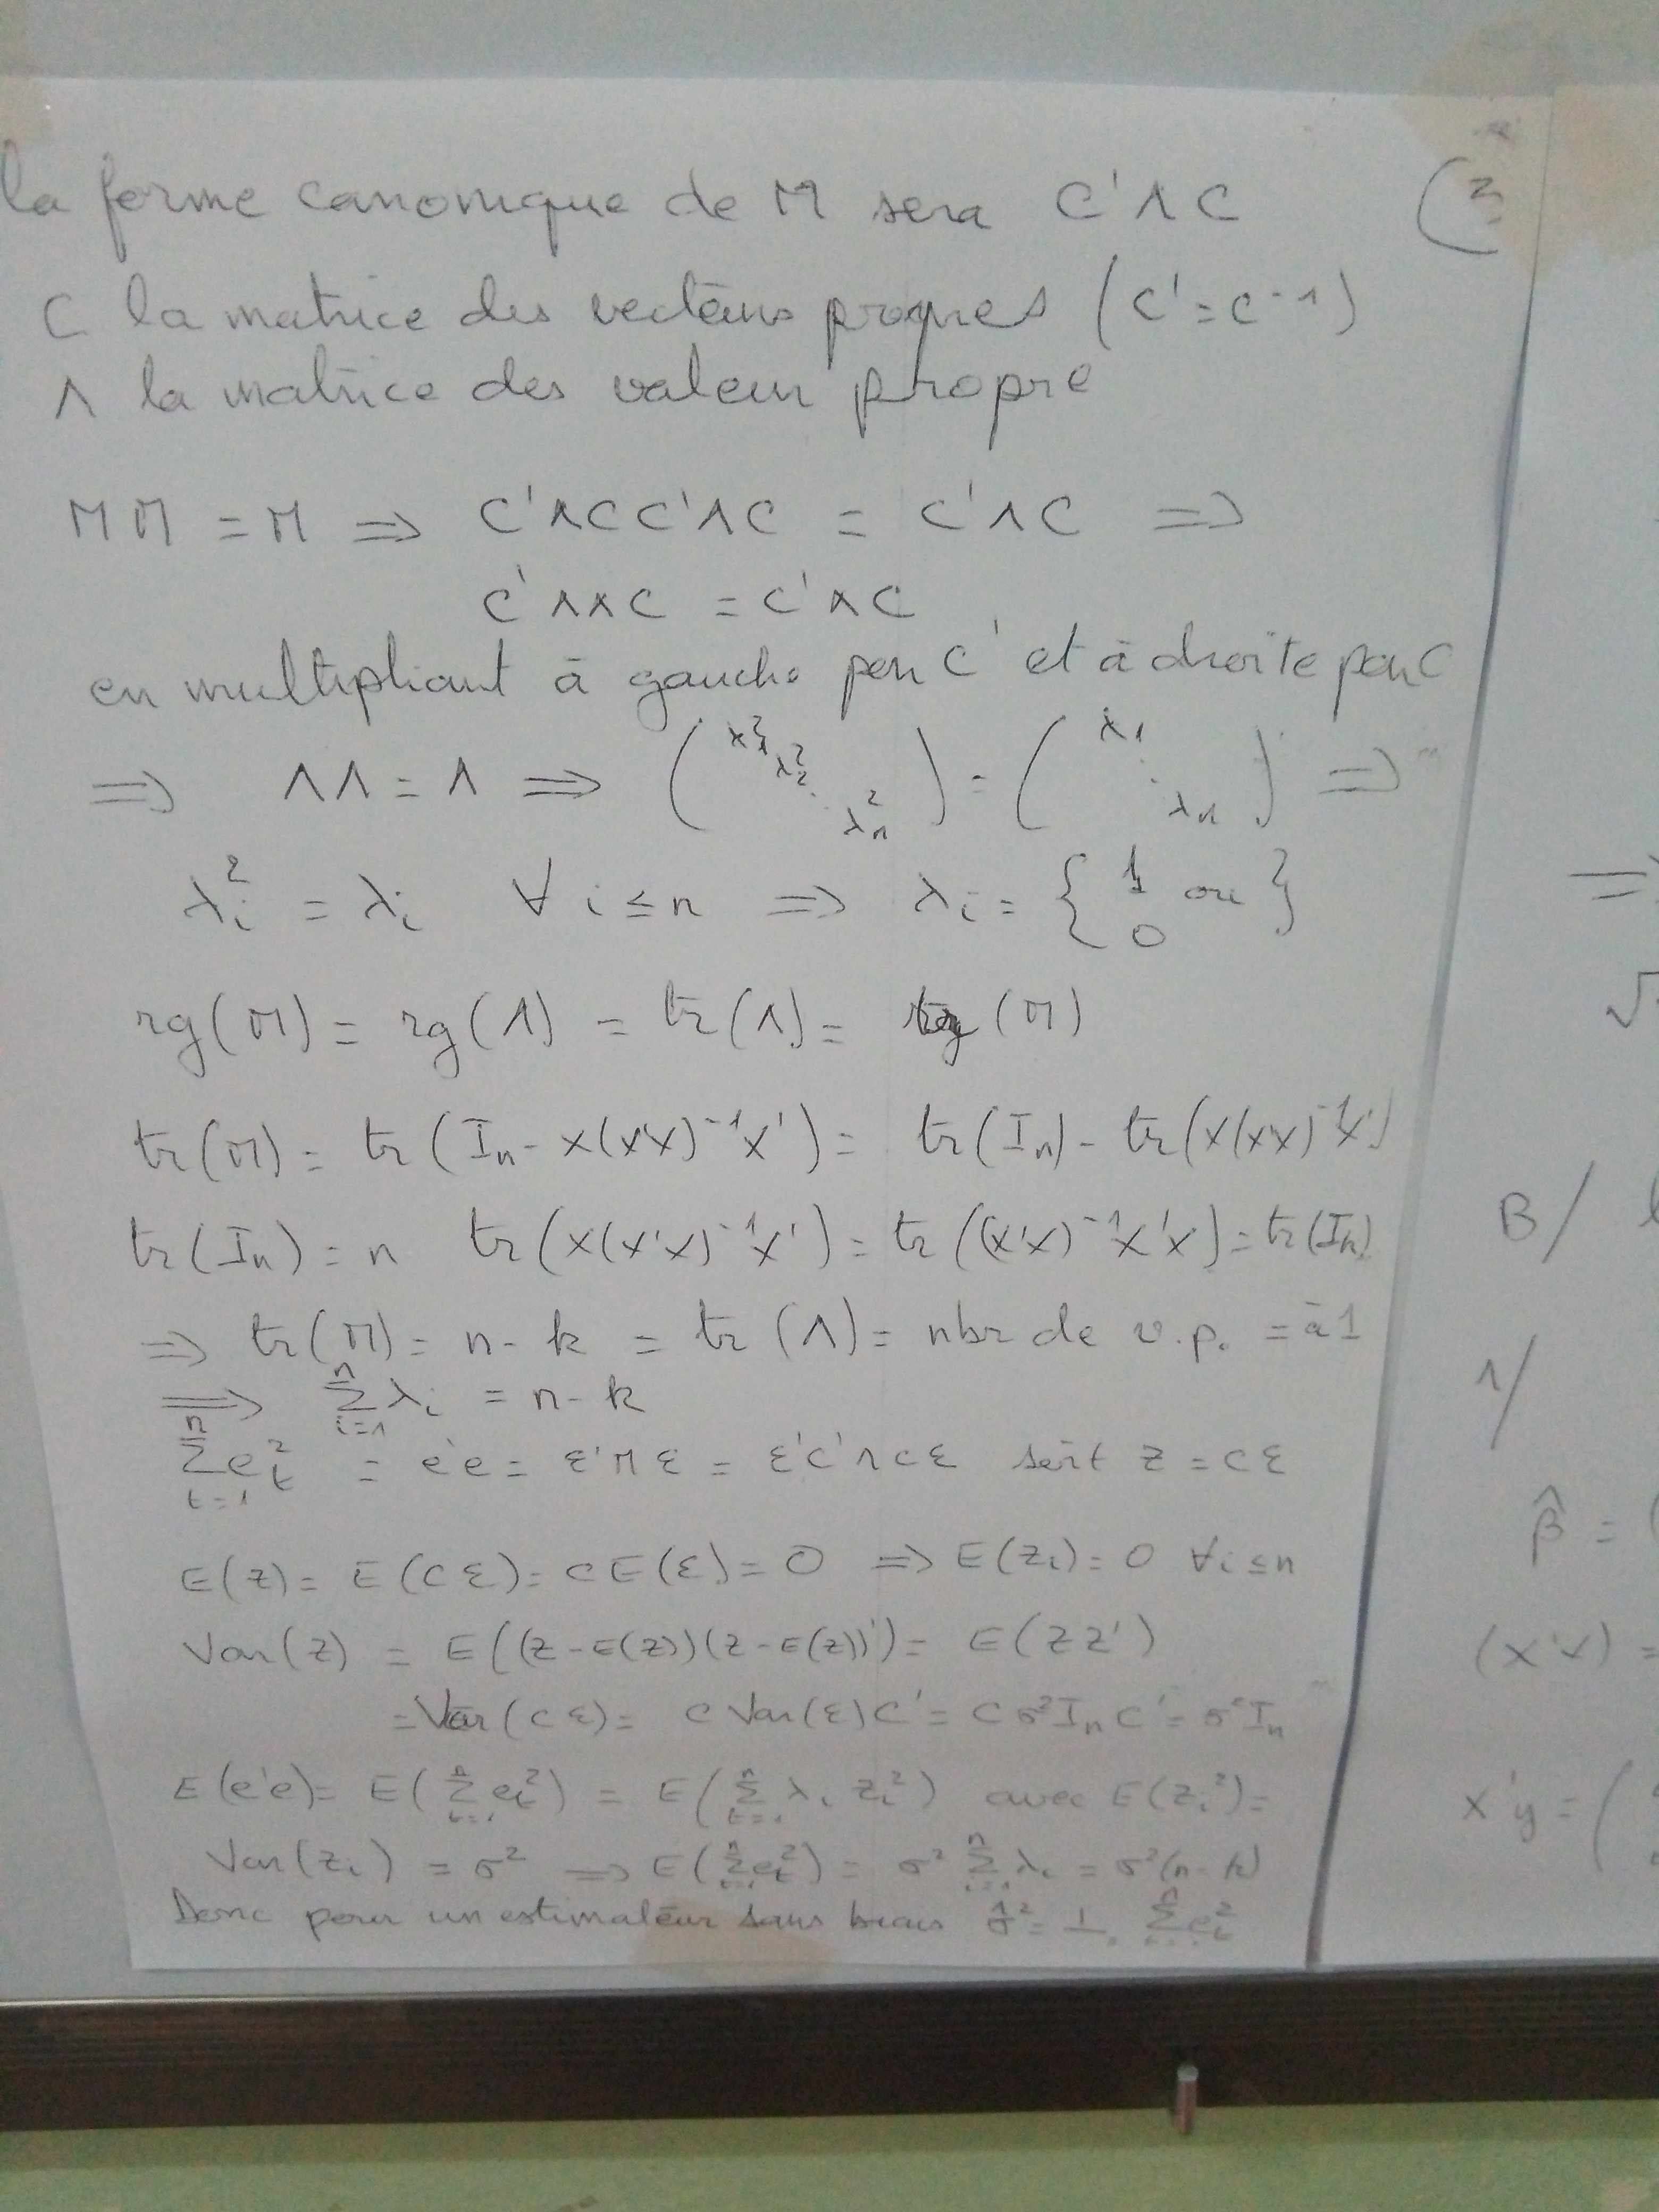 la forme canonique de M sera C'ΛC (3
C la matrice des vecteurs propres (C'=C⁻¹)
Λ la matrice des valeur propre
MM = M ⇒ C'ΛCC'ΛC = C'ΛC ⇒
C'ΛΛC = C'ΛC
en multipliant à gauche par C' et à droite par C
⇒ ΛΛ = Λ ⇒ (λ₁² λ₂² . λₙ²) = (λ₁ . λₙ) ⇒
λᵢ² = λᵢ ∀ i ≤ n ⇒ λᵢ = {1 ou 0}
rg(M) = rg(Λ) = tr(Λ) = (M)
tr(M) = tr(Iₙ - X(X'X)⁻¹X') = tr(Iₙ) - tr(X(X'X)⁻¹X')
tr(Iₙ) = n tr(X(X'X)⁻¹X') = tr((X'X)⁻¹X'X) = tr(Iₖ)
⇒ tr(M) = n - k = tr(Λ) = nbr de v.p. = à 1
⇒ Σᵢ₌₁ⁿ λᵢ = n - k
Σₜ₌₁ⁿ eₜ² = e'e = ε'Mε = ε'C'ΛCε soit Z = Cε
E(Z) = E(Cε) = CE(ε) = 0 ⇒ E(Zᵢ) = 0 ∀i ≤ n
Var(Z) = E((Z-E(Z))(Z-E(Z))') = E(ZZ')
= Var(Cε) = C Var(ε)C' = Cσ²IₙC' = σ²Iₙ
E(e'e) = E(Σₜ₌₁ⁿ eₜ²) = E(Σₜ₌₁ⁿ λᵢ Zᵢ²) avec E(Zᵢ²) =
Var(Zᵢ) = σ² ⇒ E(Σₜ₌₁ⁿ eₜ²) = σ² Σᵢ₌₁ⁿ λᵢ = σ²(n-k)
Donc pour un estimateur sans biais σ̂² = 1 Σ eₜ²
⇒
√
B/
1/
β̂ = (
(X'X) =
X'y = (